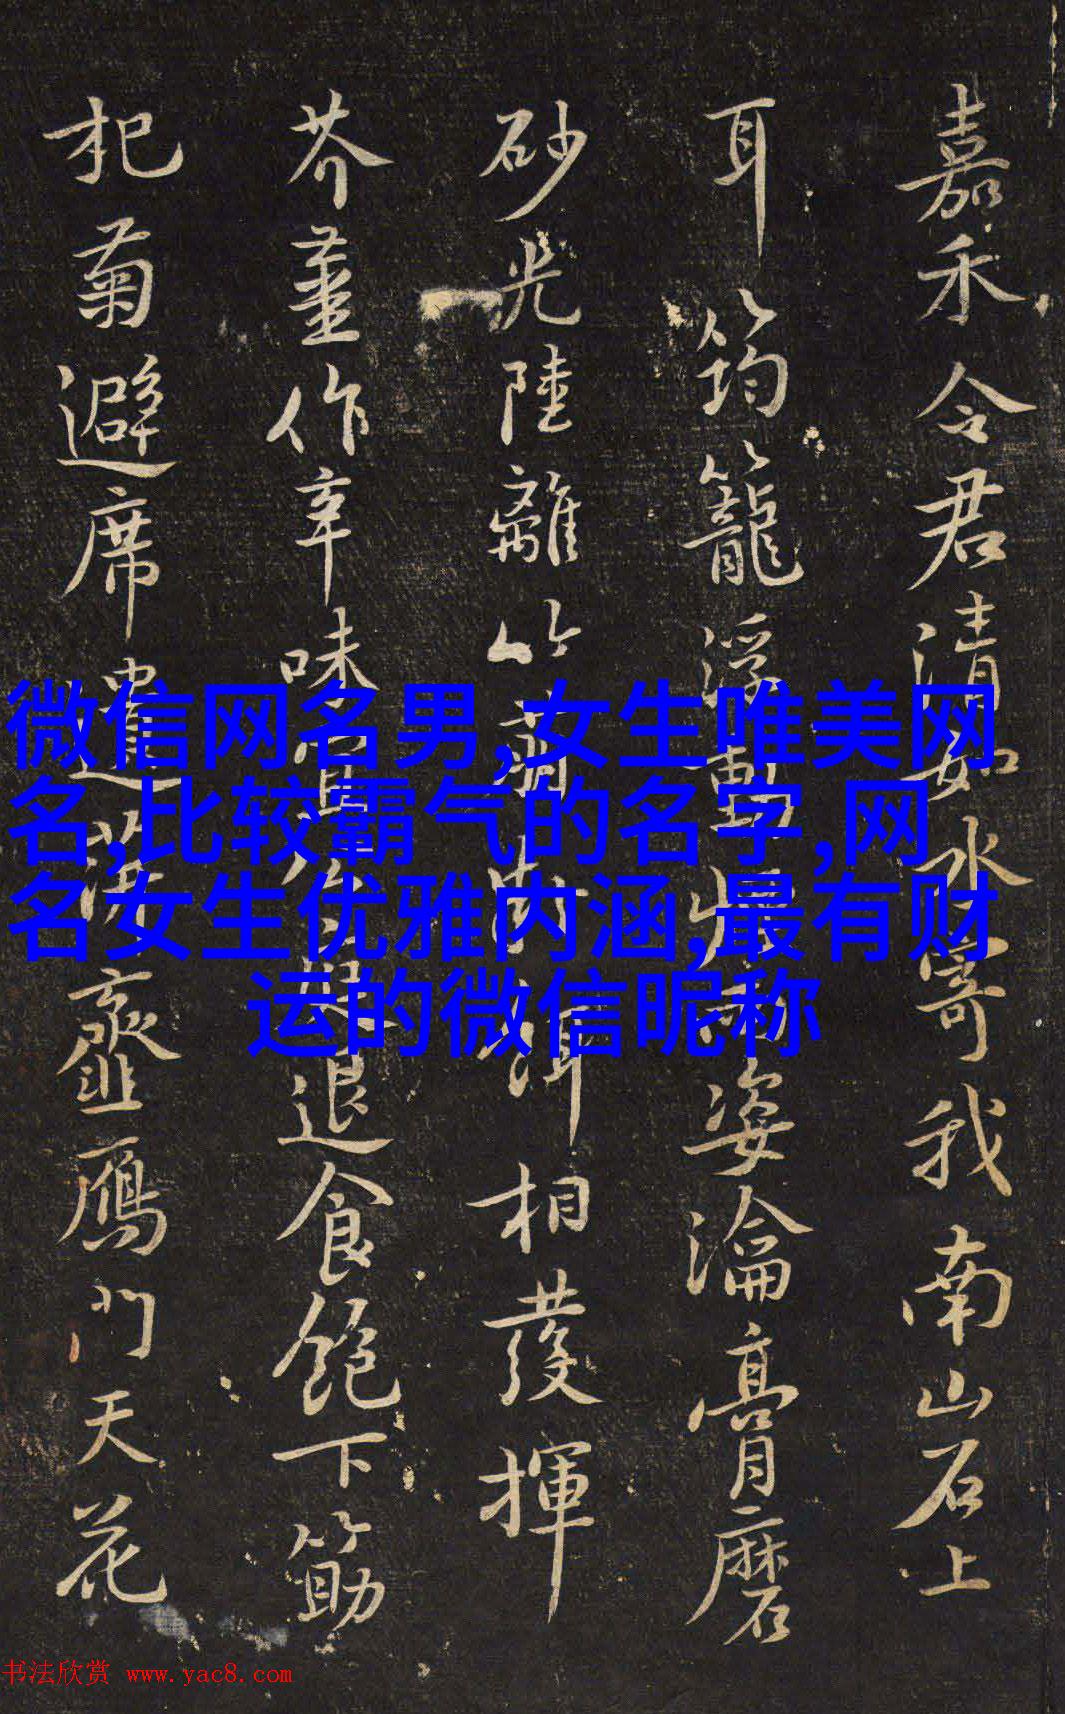 嘉禾令君清如水寄我南山石上
耳筠籠浮動姿瀹膏磨
砂光陸離竹萌餌相發揮
芥薑作辛味宜公退食飽下筯
杞菊避席遺虀鴈門天花
微信网名男,女生唯美网
名,比较霸气的名字,网
名女生优雅内涵,最有财
运的微信昵称
书法欣赏 www.yac8.com